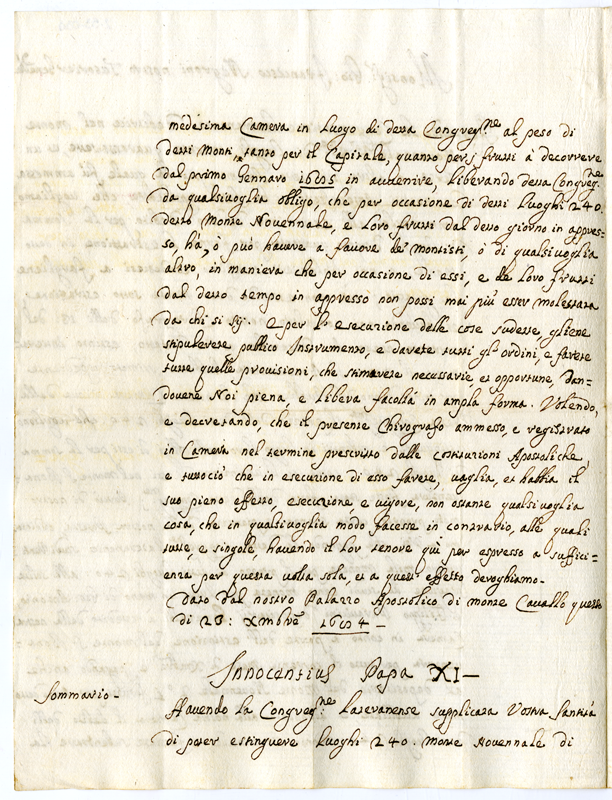 medesima Camera in Luogo di detta Congreg.ne al peso di
detti Monti, tanto per il Capitale, quanto per i frutti à decorrere
dal primo Gennaro 1685 in auuenire, liberando detta Congreg.ne
da qualsiuoglia obligo, che per occasione di detti Luoghi 240.
detto Monte Nouennale, e Loro frutti dal detto giorno in appres=
so, hà, ò può hauere a fauore de Montisti, ò di qualsiuoglia
altro, in maniera che per occasione di essi, e de loro frutti
dal detto tempo in appresso non possi mai più esser molestata
da chi si sij. e per l'esecuzione delle cose sudette, gliene
stipularete publico Instrumento, e darete tutti gl'ordini, e farete
tutte quelle prouisioni, che stimarete necessarie, et opportune, dan=
douene Noi piena, e libera facoltà in ampla forma. Volendo,
e decretando, che il presente Chirografo ammesso, e registrato
in Camera nel termine prescritto dalle costituzioni Apostoliche,
e tuttociò che in esecuzione di esso farete, vaglia, et habbia il
suo pieno effetto, esecuzione, e uigore, non ostante qualsiuoglia
cosa, che in qualsiuoglia modo facesse in contrario, alle quali
tutte, e singole, hauendo il lor tenore quì per espresso a suffici=
enza per questa uolta sola, et a quest'effetto deroghiamo.
Dato dal nostro Palazzo Apostolico di monte Cauallo questo
di 23: Xmbre 1684 -
Innocentius Papa XI -
Sommario -
Hauendo la Congreg.ne Lateranense supplicata Vostra Santità
di poter estinguere Luoghi 240. Monte Nouennale di